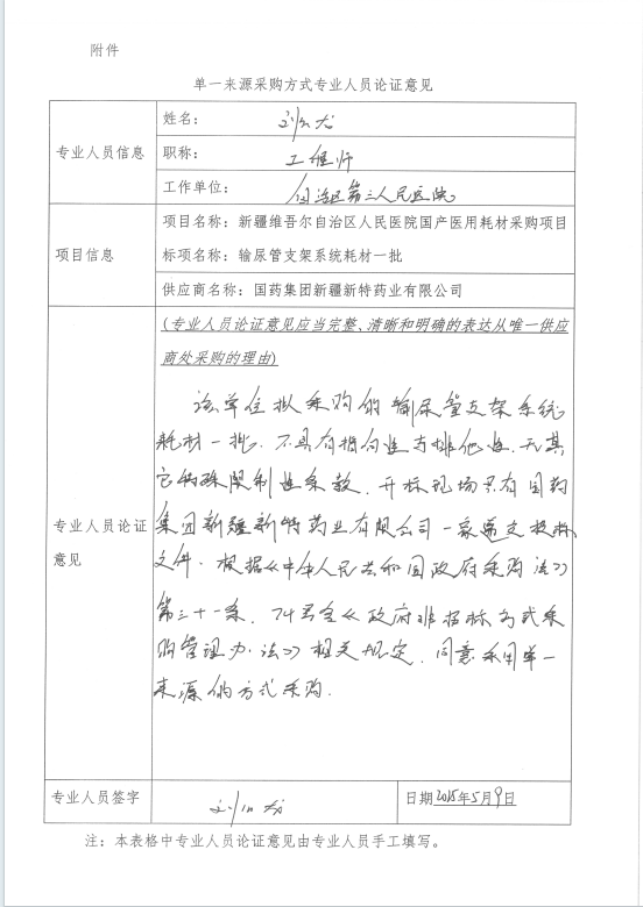 附件
单一来源采购方式专业人员论证意见
专业人员信息
姓名：
职称：工程师
工作单位：自治区第三人民医院
项目信息
项目名称：新疆维吾尔自治区人民医院国产医用耗材采购项目
标项名称：输尿管支架系统耗材一批
供应商名称：国药集团新疆新特药业有限公司
专业人员论证意见
(专业人员论证意见应当完整、清晰和明确的表达从唯一供应
商处采购的理由)
该单位拟采购的输尿管支架系统
耗材一批，不具有指向性与排他性，无其
它特殊限制性条款，开标现场只有国药
集团新疆新特药业有限公司一家递交投标
文件。根据《中华人民共和国政府采购法》
第三十一条，74号令《政府非招标方式采
购管理办法》相关规定，同意采用单一
来源的方式采购.
专业人员签字
日期2018年5月9日
注：本表格中专业人员论证意见由专业人员手工填写。